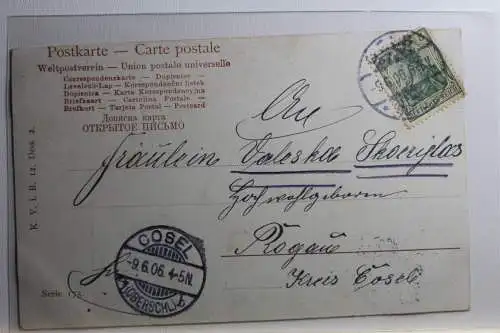 Postkarte — Carte postale
Weltpostverein — Union postale universelle
Correspondenzkarte — Dopisnice
Levelezö-Lap — Korespondenční lístek
Dopisnica — Karta Korespondencyjna
Briefkaart — Cartolina Postale
Brefkort — Tarjeta Postal — Postcard
Дописна карта
ОТКРЫТОЕ ПИСЬМО
An
Fräulein Valeska
Hochwohlgeboren
Rogau
Kreis Cosel
COSEL
-9.6.06. 4-5N.
(OBERSCHL.)
K. V. i. B. 12. Dess. 2.
Serie 175